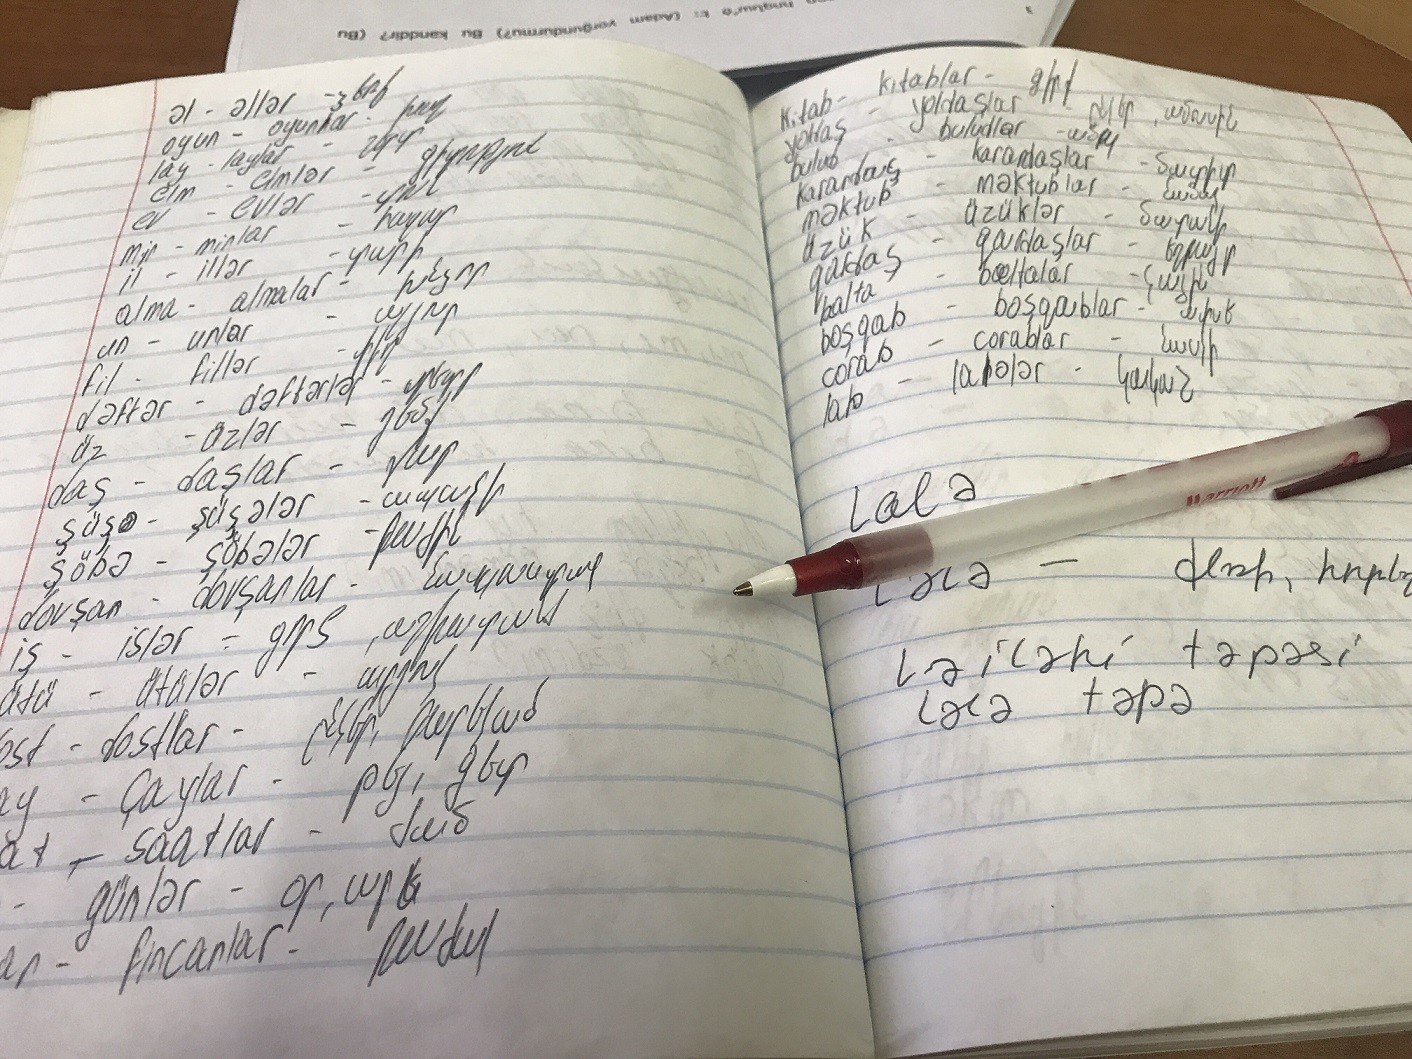 (Adam yorğundurmu?) Bu kənddir? (Bu
əl - əllər - ձեռք
oyun - oyunlar - խաղ
lay - laylar - շերտ
elm - elmlər - գիտություն
ev - evlər - տուն
min - minlər - հազար
il - illər - տարի
alma - almalar - խնձոր
un - unlar - ալյուր
fil - fillər - փիղ
dəftər - dəftərlər - տետր
üz - üzlər - դեմք
daş - daşlar - քար
şüşə - şüşələr - ապակի
şöbə - şöbələr - բաժին
dovşan - dovşanlar - նապաստակ
iş - işlər = գործ, աշխատանք
ütü - ütülər - արդուկ
ost - dostlar - ընկեր, բարեկամ
ay - çaylar - թեյ, գետ
at - saatlar - ժամ
- günlər - օր, արև
an - fincanlar - բաժակ
kitab - kitablar - գիրք
yoldaş - yoldaşlar - ընկեր, ամուսին
bulud - buludlar - ամպ
karandaş - karandaşlar - մատիտ
məktub - məktublar - նամակ
üzük - üzüklər - մատանի
qardaş - qardaşlar - եղբայր
balta - baltalar - կացին
boşqab - boşqablar - ափսե
corab - corablar - նասկի
lalə - lalələr - կակաչ
Lalə
Lələ - ժեռ,
Ləiləhi təpəsi
Lələ təpə
Marriott